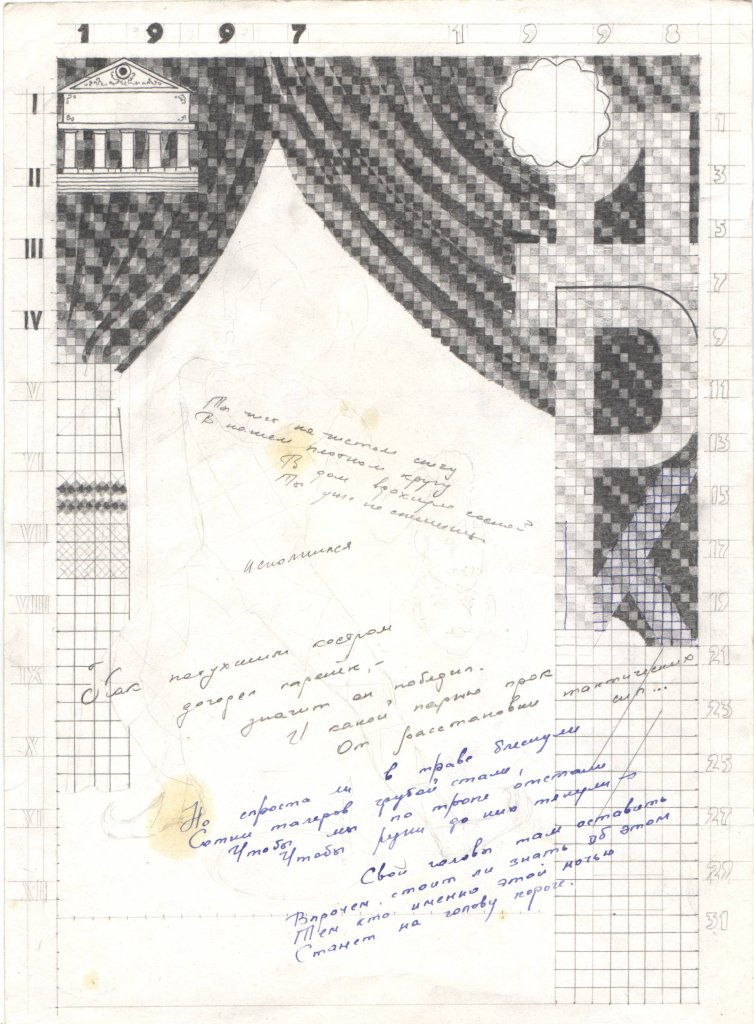 1 9 9 7 1 9 9 8
I
II
III
IV
V
VI
VII
VIII
IX
X
XI
XII
1
3
5
7
9
11
13
15
17
19
21
23
25
27
29
31
ЦИРК
Ты чист на чистом снегу
В нашем плотном кругу
В дом сосной
Ты уже не слышишь
исполнился
Как потухшим костром
догорел
значит он победил.
И какой парню прок
От расстановки тактических
сил...
Но спроста ли в траве блеснули
Сотни талеров грубой стали,
Чтобы мы по тропе отстали
Чтобы руки до них тянули
Свои головы там оставить
Впрочем, стоит ли знать об этом
Тем кто именно этой ночью
Станет на голову короче.